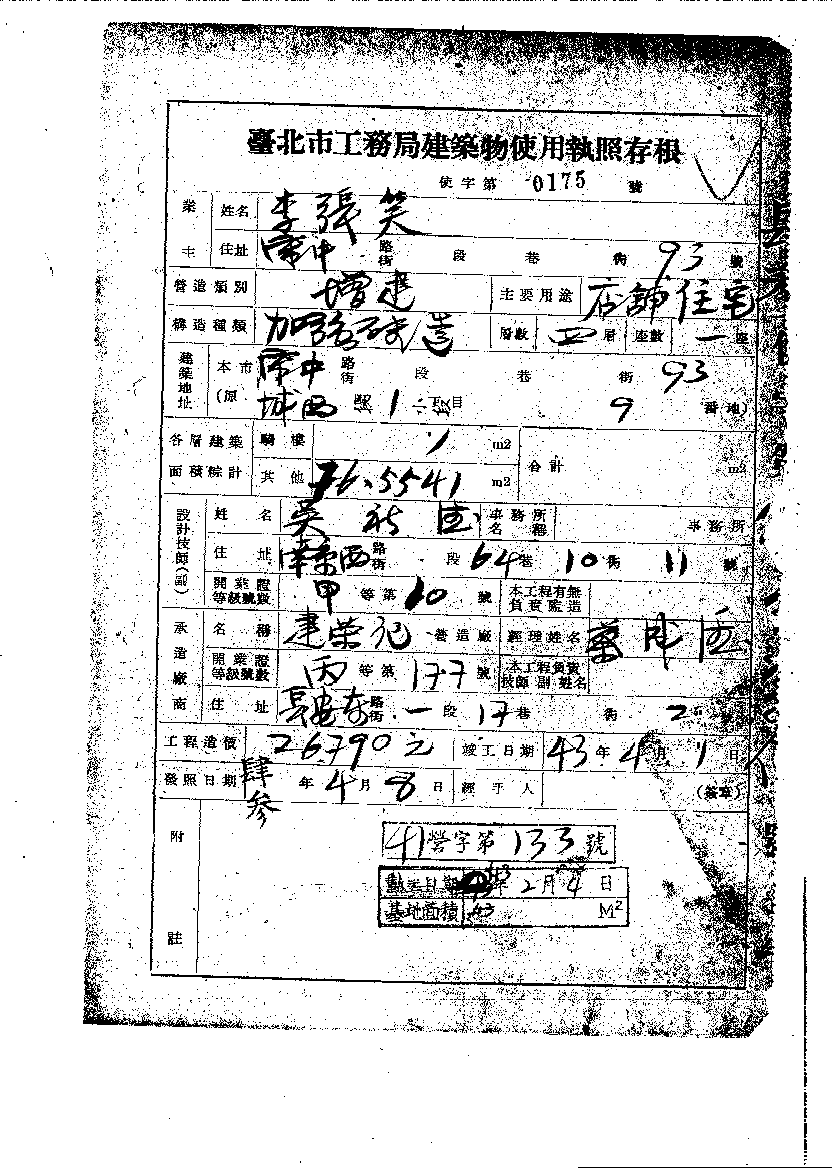 臺北市工務局建築物使用執照存根
使字第 0175 號
業主 姓名 李張笑
住址 中 路街 段 巷 街 93 號
營造類別 增建 主要用途 店舖住宅
構造種類 加強磚造 層數 四層 座數 一座
建築地址 本市 中 路街 段 巷 街 93
(原 城西 1 丁目 9 番地)
各層建築面積綜計 騎樓 / m2 合計 m2
其他 76.5541 m2
設計技師(副) 姓名 吳 事務所名稱 事務所
住址 南京西 路街 段 64 巷 10 街 11 號
開業證等級號數 甲 等第 10 號 本工程有無負責監造
承造廠商 名稱 建榮 營造廠 經理姓名
開業證等級號數 丙 等第 177 號 本工程負責技師副姓名
住址 長安東 路街 一 段 17 巷 街 2
工程造價 26790 元 竣工日期 43 年 4 月 1 日
發照日期 肆參 年 4 月 8 日 經手人 (簽章)
附註
41 營字第 133 號
動工日期 43 年 2 月 4 日
基地面積 43 M²